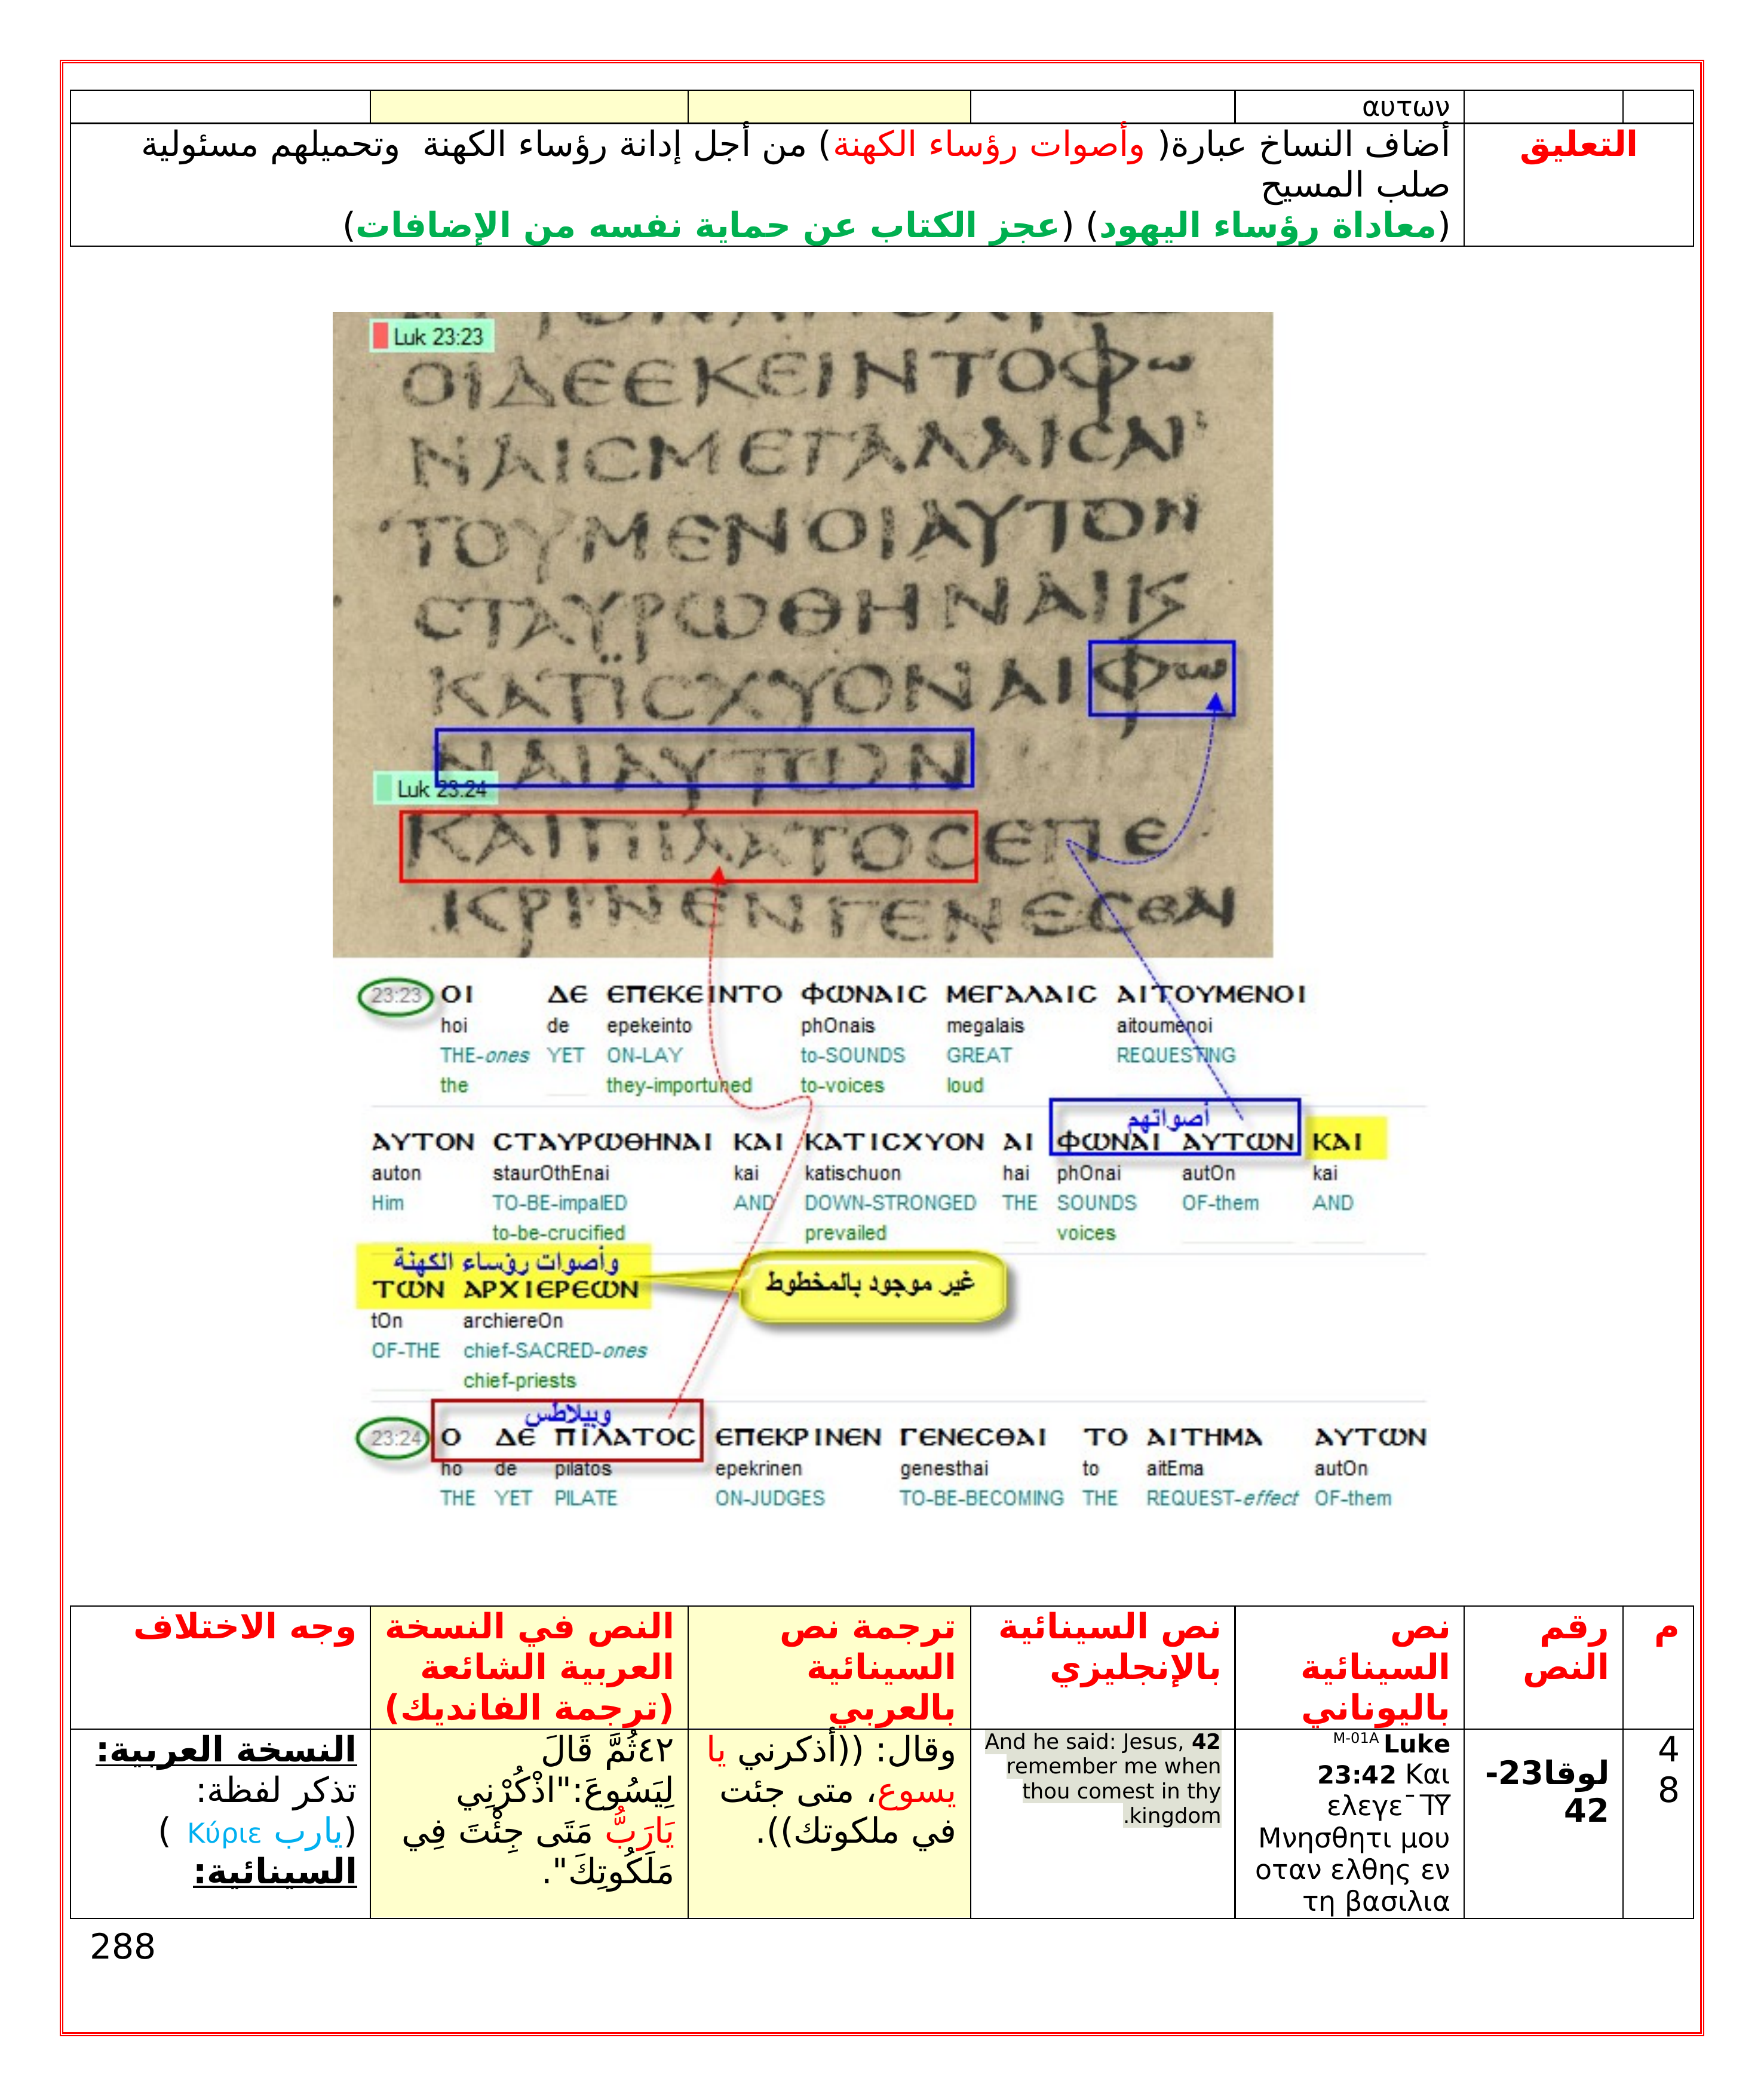 αυτων
التعليق
أضاف النساخ عبارة( وأصوات رؤساء الكهنة) من أجل إدانة رؤساء الكهنة وتحميلهم مسئولية
صلب المسيح
(معاداة رؤساء اليهود) (عجز الكتاب عن حماية نفسه من الإضافات)
Luk 23:23
ΟΙΔΕΕΚΕΙΝΤΟΦω
ΝΑΙϹΜΕΓΑΛΑΙϹΑΙ
ΤΟΥΜΕΝΟΙΑΥΤΟΝ
ϹΤΑΥΡΩΘΗΝΑΙΚ
ΚΑΤΙϹΧΥΟΝΑΙΦω
ΝΑΙΑΥΤΩΝ
Luk 23:24
ΚΑΙΠΙΛΑΤΟϹΕΠΕ
ΚΡΙΝΕΝΓΕΝΕϹΘΑΙ
23:23 ΟΙ ΔΕ ΕΠΕΚΕΙΝΤΟ ΦΩΝΑΙϹ ΜΕΓΑΛΑΙϹ ΑΙΤΟΥΜΕΝΟΙ
hoi de epekeinto phOnais megalais aitoumenoi
THE-ones YET ON-LAY to-SOUNDS GREAT REQUESTING
the they-importuned to-voices loud
أصواتهم
ΑΥΤΟΝ ϹΤΑΥΡΩΘΗΝΑΙ ΚΑΙ ΚΑΤΙϹΧΥΟΝ ΑΙ ΦΩΝΑΙ ΑΥΤΩΝ ΚΑΙ
auton staurOthEnai kai katischuon hai phOnai autOn kai
Him TO-BE-impalED AND DOWN-STRONGED THE SOUNDS OF-them AND
to-be-crucified prevailed voices
وأصوات رؤساء الكهنة
غير موجود بالمخطوط
ΤΩΝ ΑΡΧΙΕΡΕΩΝ
tOn archiereOn
OF-THE chief-SACRED-ones
chief-priests
وبيلاطس
23:24 Ο ΔΕ ΠΙΛΑΤΟϹ ΕΠΕΚΡΙΝΕΝ ΓΕΝΕϹΘΑΙ ΤΟ ΑΙΤΗΜΑ ΑΥΤΩΝ
ho de pilatos epekrinen genesthai to aitEma autOn
THE YET PILATE ON-JUDGES TO-BE-BECOMING THE REQUEST-effect OF-them
م
رقم
النص
نص
السينائية
باليوناني
نص السينائية
بالإنجليزي
ترجمة نص
السينائية
بالعربي
النص في النسخة
العربية الشائعة
(ترجمة الفانديك)
وجه الاختلاف
4
8
لوقا23-
42
M-01A Luke
23:42 Και
ελεγε¯ ΙΥ
Μνησθητι μου
οταν ελθης εν
τη βασιλια
And he said: Jesus, 42
remember me when
thou comest in thy
kingdom.
وقال: ((أذكرني يا
يسوع، متى جئت
في ملكوتك)).
٤٢ثُمَّ قَالَ
لِيَسُوعَ:"اذْكُرْنِي
يَارَبُّ مَتَى جِئْتَ فِي
مَلَكُوتِكَ".
النسخة العربية:
تذكر لفظة:
(يارب Κύριε )
السينائية:
288